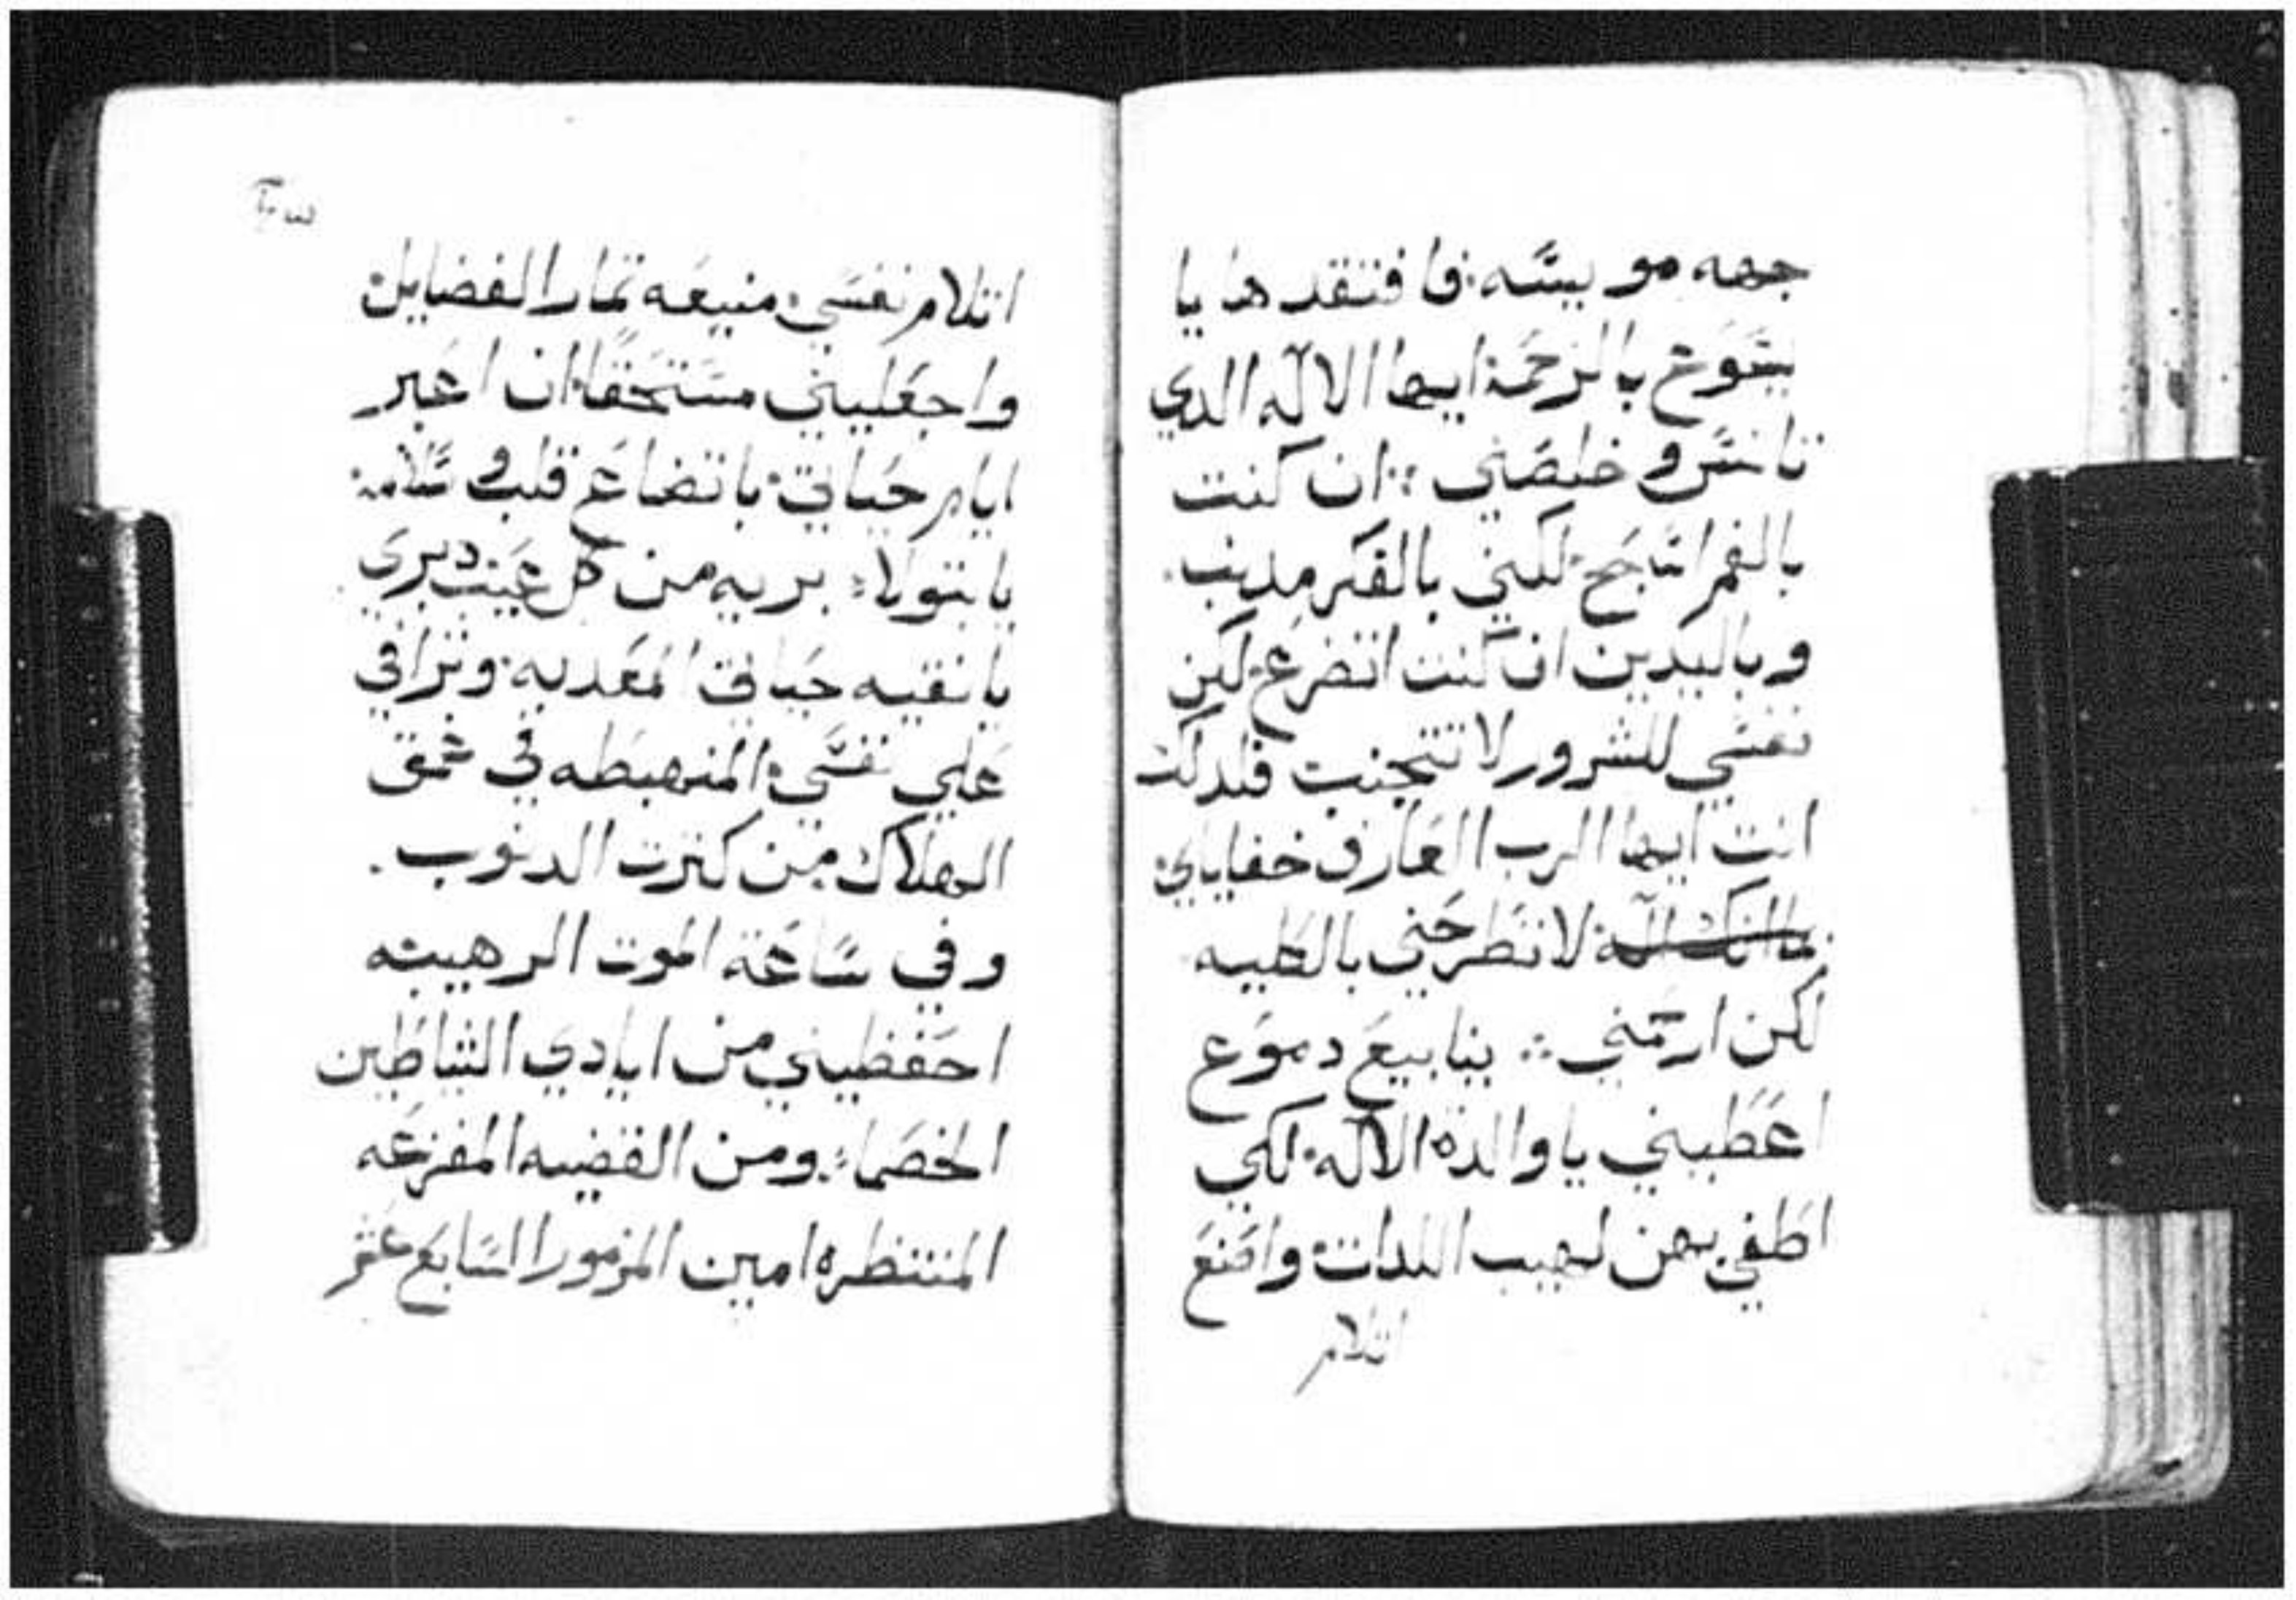 جهه مويسه فافتقدها يا
يسوع بالرحمة ايها الاله الدي
تانس وخلصني ان كنت
بالفم اسَاجَح لكني بالفكر مدنب
وباليدين ان كنت اتضرع لكن
نفسي للشرور لا تتجنب فلدلك
انت ايها الرب العارف خفاياي
لا تطرحني بالكليه
لكن ارحمني ينابيع دموع
اعطيني يا والدة الاله لكي
اطفي بهن لهيب اللدات واصنع
اتلام
اتلام نفسي منيعه تمار الفضايل
واجعليني مستحقا ان اعبر
ايام حياتي باتضاع قلب وسلامه
يا بتولا بريه من كل عيب دبري
يا نقيه حياتي المعدبه وتراافي
علي نفسي المنهبطه في عمق
الهلاك من كترت الدنوب
وفي ساعة الموت الرهيبه
احفظيني من ايادي الشياطين
الخصما ومن القضيه المفزعه
المنتظره امين المزمور السابع عشر